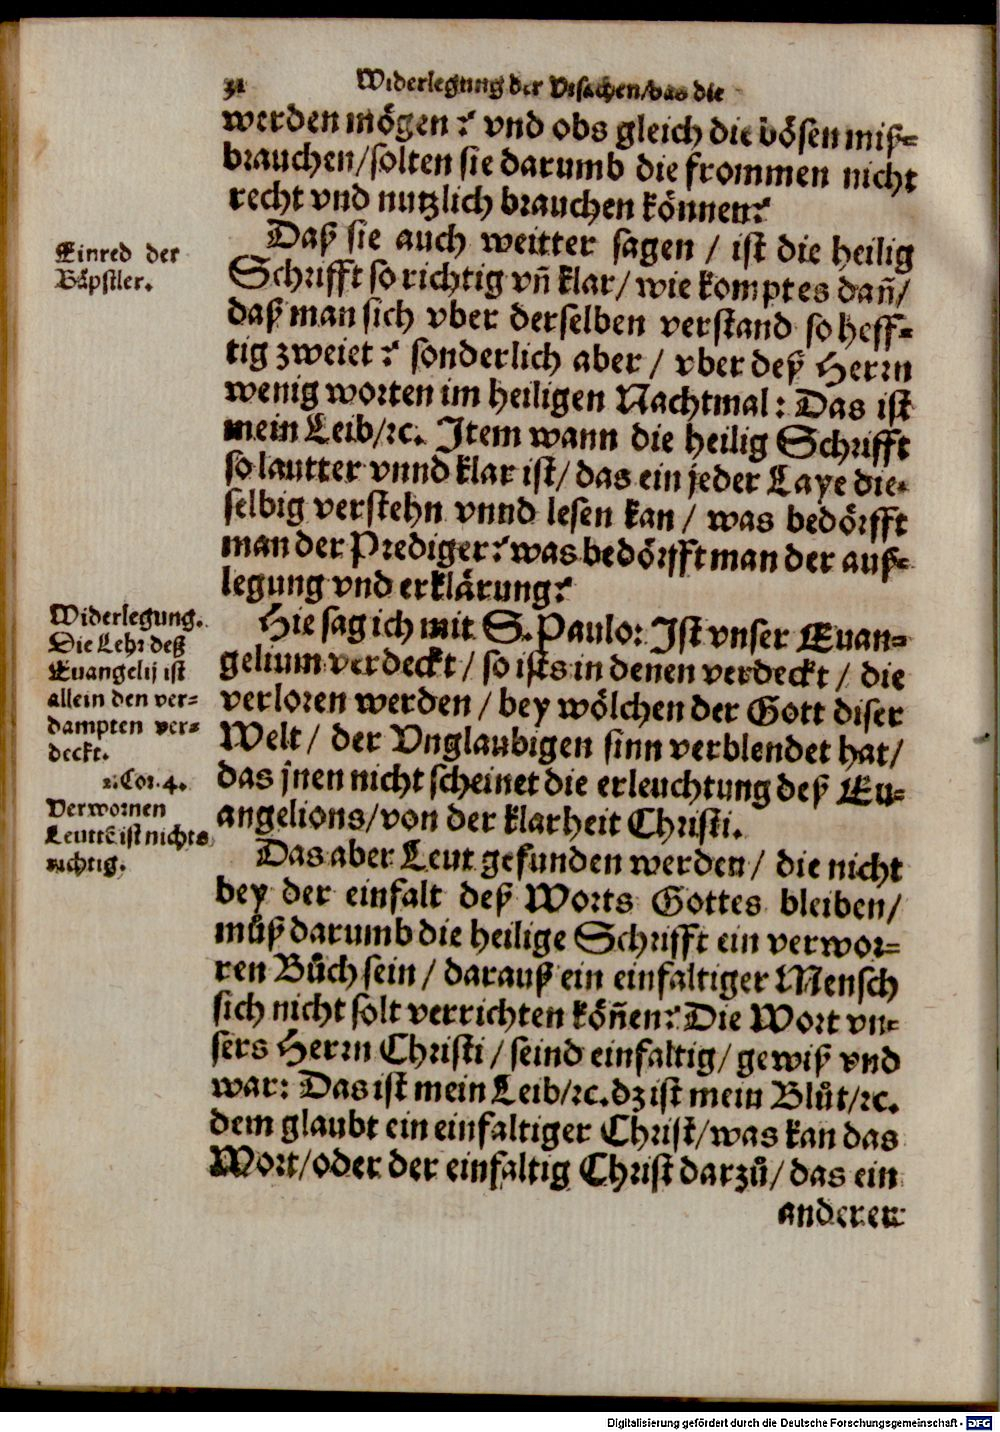 31 Widerlegung der Vrsachen/das die
werden mögen? vnd obs gleich die bösen miß-
brauchen/solten sie darumb die frommen nicht
recht vnd nutzlich brauchen können?
Einred der
Bäpstler.
Daß sie auch weitter sagen / ist die heilig
Schrifft so richtig vñ klar/ wie kompt es dañ/
daß man sich vber derselben verstand so heff-
tig zweiet? sonderlich aber / vber deß Herrn
wenig worten im heiligen Nachtmal: Das ist
mein Leib/ꝛc. Item wann die heilig Schrifft
so lautter vnnd klar ist/ das ein jeder Laye die-
selbig verstehn vnnd lesen kan / was bedörfft
man der Prediger? was bedörfft man der auß-
legung vnd erklärung?
Widerlegung.
Die Lehr deß
Euangelij ist
allein den ver-
dampten ver-
deckt.
2. Cor. 4.
Verwornen
Leuttẽ ist nichts
richtig.
Hie sag ich mit S. Paulo: Ist vnser Euan-
gelium verdeckt / so ists in denen verdeckt / die
verloren werden / bey wölchen der Gott diser
Welt / der Vnglaubigen sinn verblendet hat/
das jnen nicht scheinet die erleuchtung deß Eu-
angelions/von der klarheit Christi.
Das aber Leut gefunden werden / die nicht
bey der einfalt deß Worts Gottes bleiben/
můß darumb die heilige Schrifft ein verwor-
ren Bůch sein / darauß ein einfaltiger Mensch
sich nicht solt verrichten köñen? Die Wort vn-
sers Herrn Christi / seind einfaltig/ gewiß vnd
war: Das ist mein Leib/ꝛc. dz ist mein Blůt/ꝛc.
dem glaubt ein einfaltiger Christ/was kan das
Wort/oder der einfaltig Christ darzů/ das ein
anderer
Digitalisierung gefördert durch die Deutsche Forschungsgemeinschaft - DFG